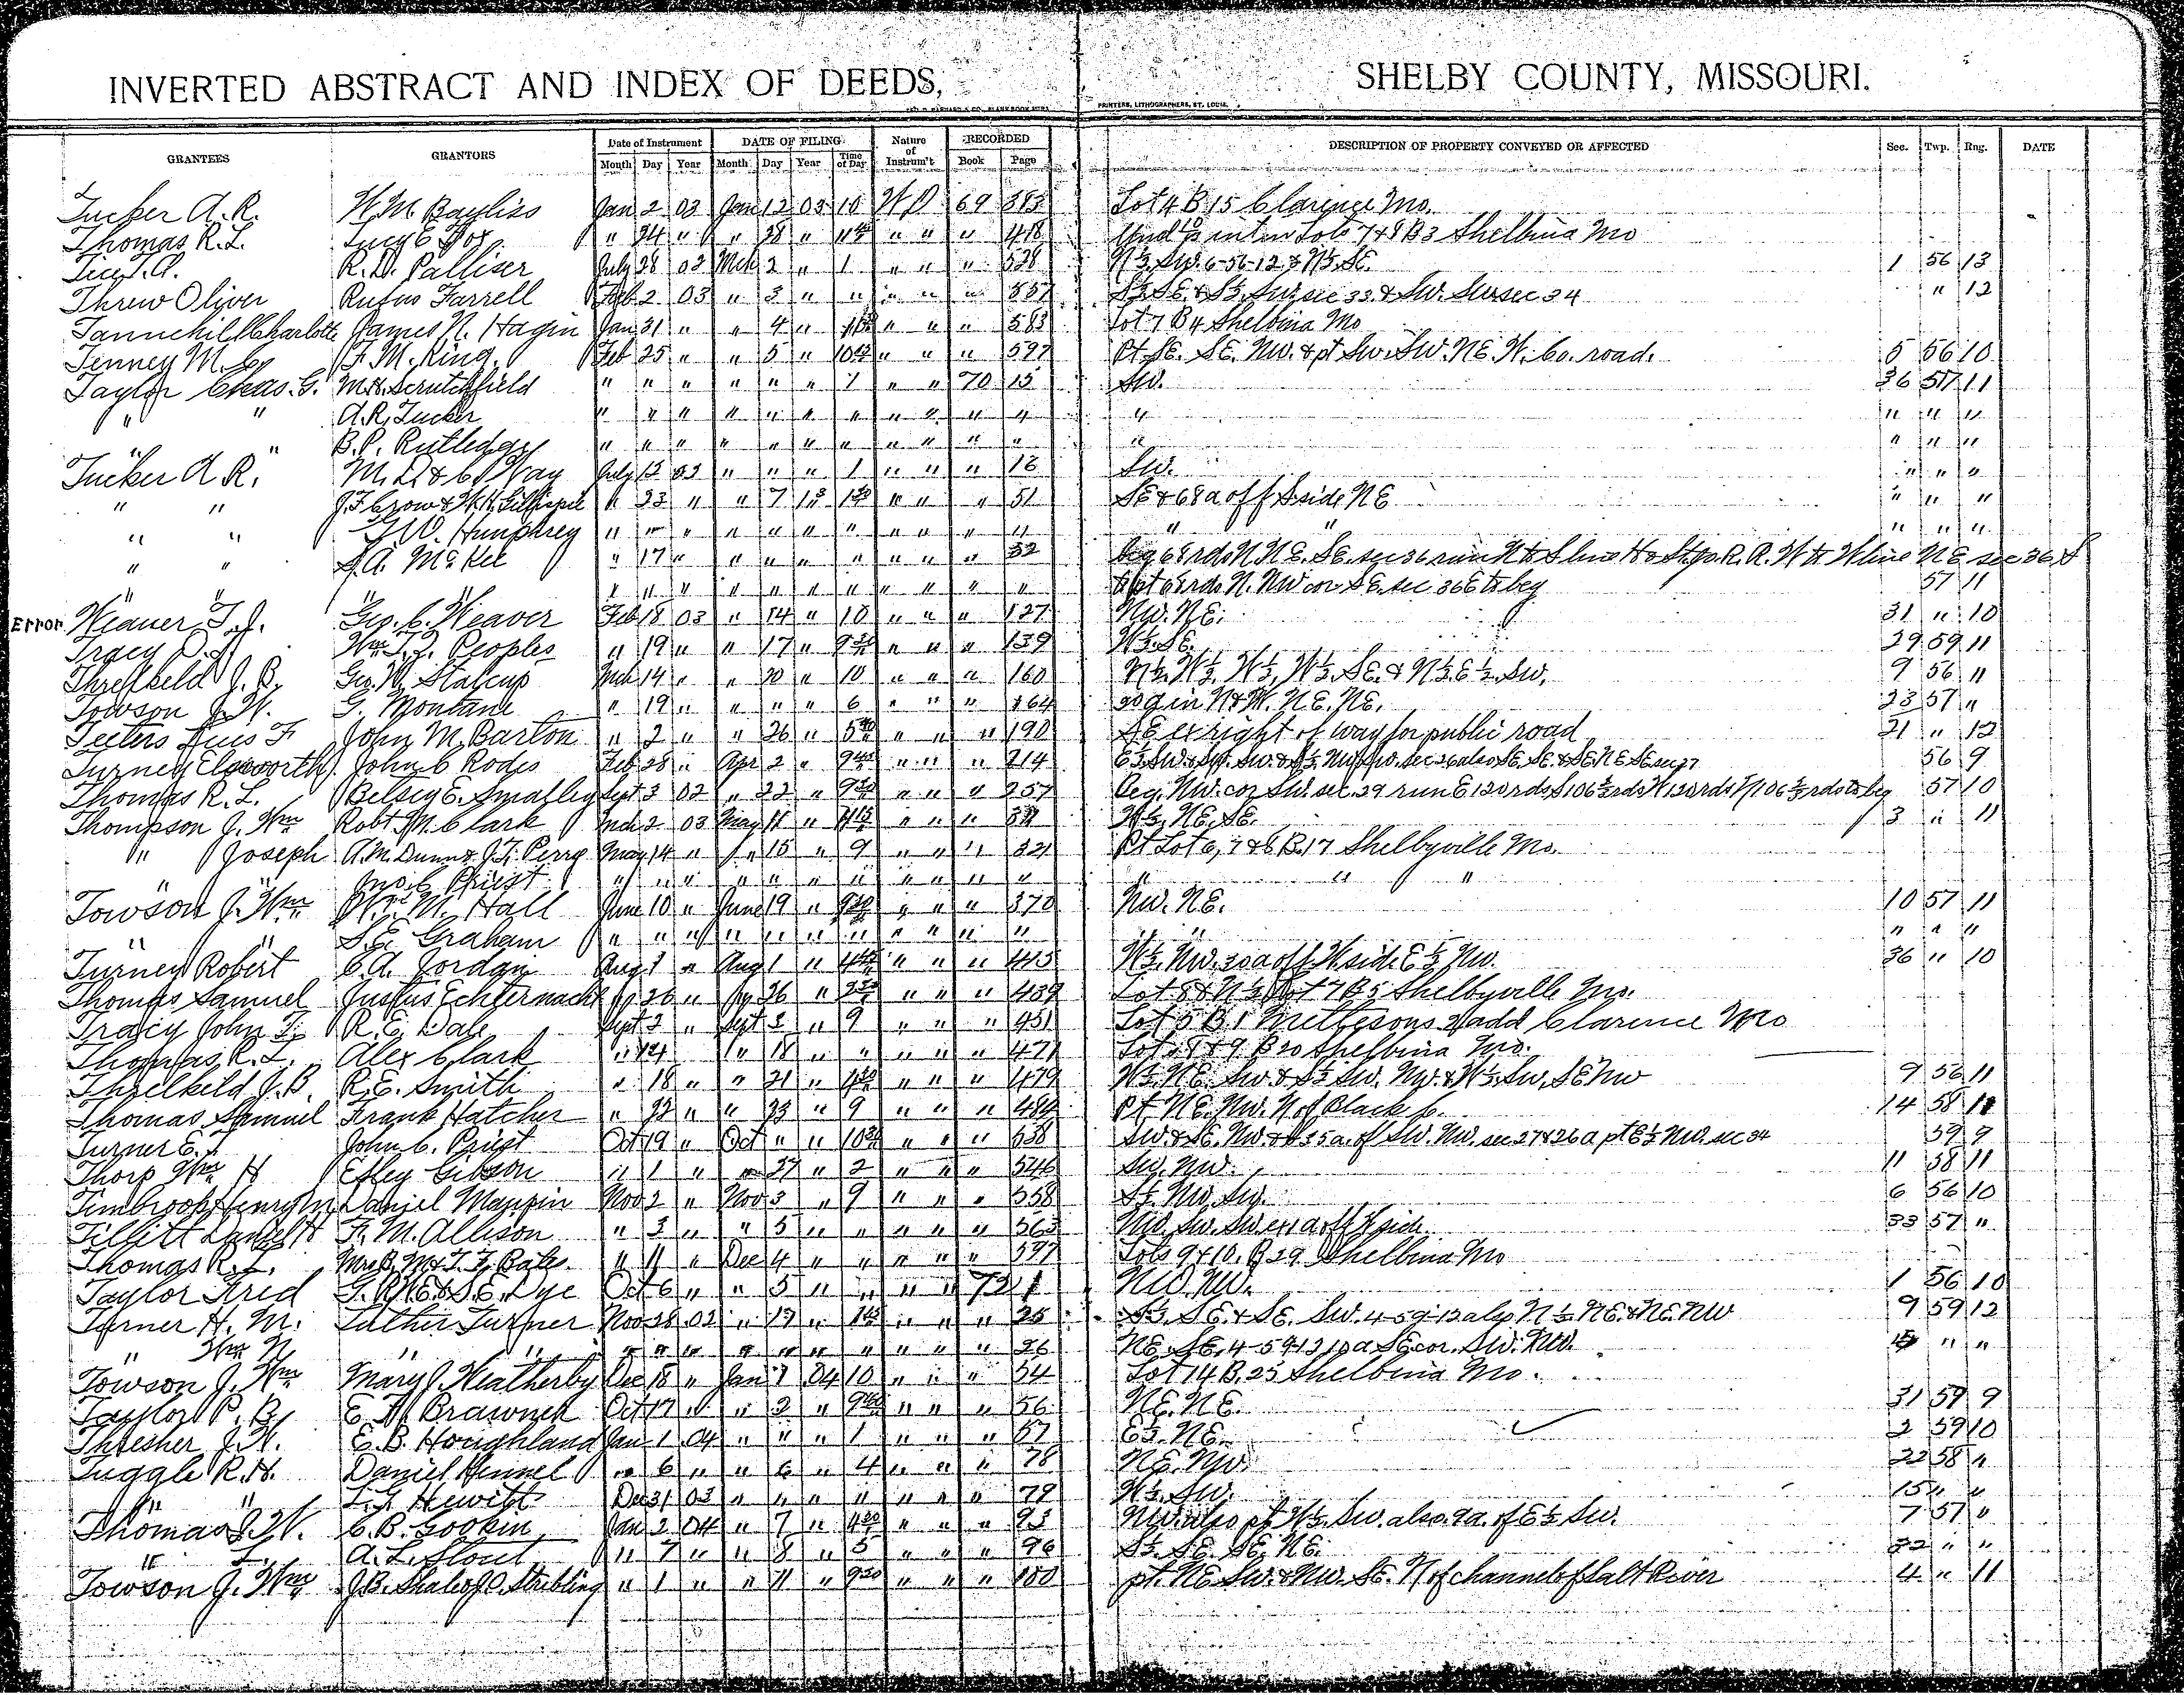 INVERTED ABSTRACT AND INDEX OF DEEDS, SHELBY COUNTY, MISSOURI.
PRINTERS, LITHOGRAPHERS, ST. LOUIS.
GRANTEES GRANTORS Date of Instrument DATE OF FILING Nature of Instrum't RECORDED DESCRIPTION OF PROPERTY CONVEYED OR AFFECTED Sec. Twp. Rng. DATE
Month Day Year Month Day Year Time of Day Book Page
Tucker A. R. W. M. Bayliss Jan 2 03 Jan 12 03 10 W D 69 383 Lot 4 B 15 Clarence Mo.
Thomas R. L. Lucy E Fox " 24 " " 28 " " " " 418 Und in Lots 7 & 8 B 3 Shelbina Mo
Tice T. A. R. D. Palliser July 28 02 Mch 2 " 1 " " " 528 N½ Sw. 6-56-12 & N½ SE. 1 56 13
Threw Oliver Rufus Farrell Feb 2 03 " 3 " " " " " 557 S½ SE & S½ Sw sec 33 & Sw. Sw sec 34 " 12
Tannehill Charlotte James N. Hagin Jan 31 " " 4 " " " " 583 Lot 7 B 4 Shelbina Mo
Tenney M. Co F. M. King Feb 25 " " 5 " " " " 597 Pt SE. SE. NW. & pt Sw. SW. NE. W. Co. road. 5 56 10
Taylor Chas. G. M. H. Scrutchfield " " " " " " 1 " " 70 15 Sw. 36 57 11
" " A. R. Tucker " " " " " " " " " " " " " " "
" " B. P. Rutledge " " " " " " " " " " " " " " "
Tucker A R. M. D. & C. Way July 13 03 " " " 1 " " " 18 Sw. " " "
" " J. F. Crow & W. H. Gillispie " 23 " " 7 " " " " 51 SE & 68 a off S side NE " " "
" " G. W. Humphrey " " " " " " " " " " " " " " " "
" " S. A. McKee " 17 " " " " " " " " 52 beg 68 rds N. N.E. SE. sec 36 run N to S line H & St. Jo. R. R. W to W line NE sec 36 S
" " " " " " " " " " " " " " to pt 68 rds N. NW cor SE. sec 36 E to beg 57 11
Error Weaver T. J. Geo. C. Weaver Feb 18 03 " 14 " 10 " " " 127 NW. NE. 31 " 10
Tracy D. J. Wm T. F. Peoples " 19 " " 17 " " " " 139 W½ SE. 29 59 11
Threlkeld J. B. Geo. W. Stalcup Mch 14 " " 20 " 10 " " " 160 N½ W½ W½ W½ SE. & N½ E½ Sw. 9 56 11
Towson J. W. G. Montane " 19 " " " " 6 " " " 164 in N & W. NE. NE. 23 57 "
Teeters F John M. Barton " 2 " " 26 " " " " 190 SE ex right of way for public road 21 " 12
Turney Elsworth John C Rodes Feb 28 " Apr 2 " " " " 214 E½ Sw & Sw. Sw. & S½ NW Sw. sec 26 also SE SE & SE NE SE sec 27 56 9
Thomas R. L. Betsey E. Smalley Sept 3 02 " 22 " " " " 257 beg. NW. cor Sw. sec. 29 run E 120 rds S 106⅔ rds W 120 rds N 106⅔ rds to beg 57 10
Thompson J. Wm Robt M. Clark Mch 2 03 May 11 " " " " W½ NE. SE. 3 " 11
" Joseph A. M. Dunn & J. T. Perry May 14 " " 15 " 9 " " " 321 Pt Lot 6, 7 & 8 B. 17 Shelbyville Mo.
" " Jno. C Priest " " " " " " " " " " " " "
Towson J. Wm W. M. Hall June 10 " June 19 " " " " 370 NW. NE. 10 57 11
" " S. E. Graham " " " " " " " " " " " " " " " "
Turney Robert C. A. Jordan Aug 1 " Aug 1 " " " " 415 W½ NW. 30 a off W side E½ NW. 36 " 10
Thomas Samuel Justus Echternacht " 26 " " 26 " " " " 439 Lot 8 & N½ Lot 7 B 5 Shelbyville Mo.
Tracy John T. R. E. Dale Sept 3 " Sept 3 " 9 " " " 451 Lot 5 B 1 2 add Clarence Mo
Thomas R. L. Alex Clark " 14 " 18 " " " " " 471 Lots 8 & 9 B 20 Shelbina Mo.
Threlkeld J. B. R. E. Smith " 18 " " 21 " " " " 479 W½ NE. Sw & S½ Sw. NW. & W½ Sw. SE NW 9 56 11
Thomas Samuel Frank Hatcher " 22 " " 23 " 9 " " " 484 Pt NE. NW. N of Black C. 14 58 11
Turner E. T John C. Priest Oct 19 " Oct " " " " " 538 Sw. & SE. NW. & 35 a. of Sw. NW. sec 27 & 26 a pt E½ NW. sec 34 59 9
Thorp Wm H Effey Gibson " 1 " " 27 " 2 " " " 546 Sw. NW. 11 58 11
Timbrook Henry M Daniel Maupin Nov 2 " Nov 3 " 9 " " " 558 S½ NW Sw. 6 56 10
Tillitt Daniel H F. M. Allison " 3 " " 5 " " " " " 563 NW. Sw. Sw ex 1 a off W side 33 57 "
Thomas R. L. Mrs B. M. & T. F. Bates " 11 " Dec 4 " " " " " 597 Lots 9 & 10. B 29 Shelbina Mo
Taylor Fred G. R. W. E. & S. E. Dye Oct 6 " " 5 " " " " 72 1 NW. NW. 1 56 10
Turner H. M. Luther Turner Nov 28 02 " 17 " " " " 25 S½ SE. & SE. Sw. 4-59-12 also N½ NE. & NE NW 9 59 12
" Wm N " " " " " " " " " " " " 26 NE. SE. 4-59-12 10 a SE cor. Sw. NW. " "
Towson J. Wm Mary J. Weatherby Dec 18 " Jan 1 04 10 " " " 54 Lot 14 B. 25 Shelbina Mo.
Taylor P. B. E. A. Brawner Oct 17 " " 2 " " " " 56 NE. NE. 31 59 9
Thresher J. W. E. B. Houghland Jan 1 04 " " " 1 " " " 57 E½ NE. 2 59 10
Tuggle R. H. Daniel Hennel " 6 " " 6 " 4 " " " 78 NE. NW. 22 58 "
" " L. G Hewitt Dec 31 03 " " " " " " " 79 W½ Sw. 15 " "
Thomas J. W. C. B. Gookin Jan 2 04 " 7 " " " " 93 NW. also pt W½ Sw. also 9 a. of E½ Sw. 7 57 "
" L. A. L. Stout " 7 " " 8 " 5 " " " 96 S½ SE. SE. NE. 32 " "
Towson J. Wm J. B. Shale of O. Stribling " 1 " " 11 " 9 " " " 100 pt. NE Sw. & NW. SE. N of channel of Salt River 4 " 11